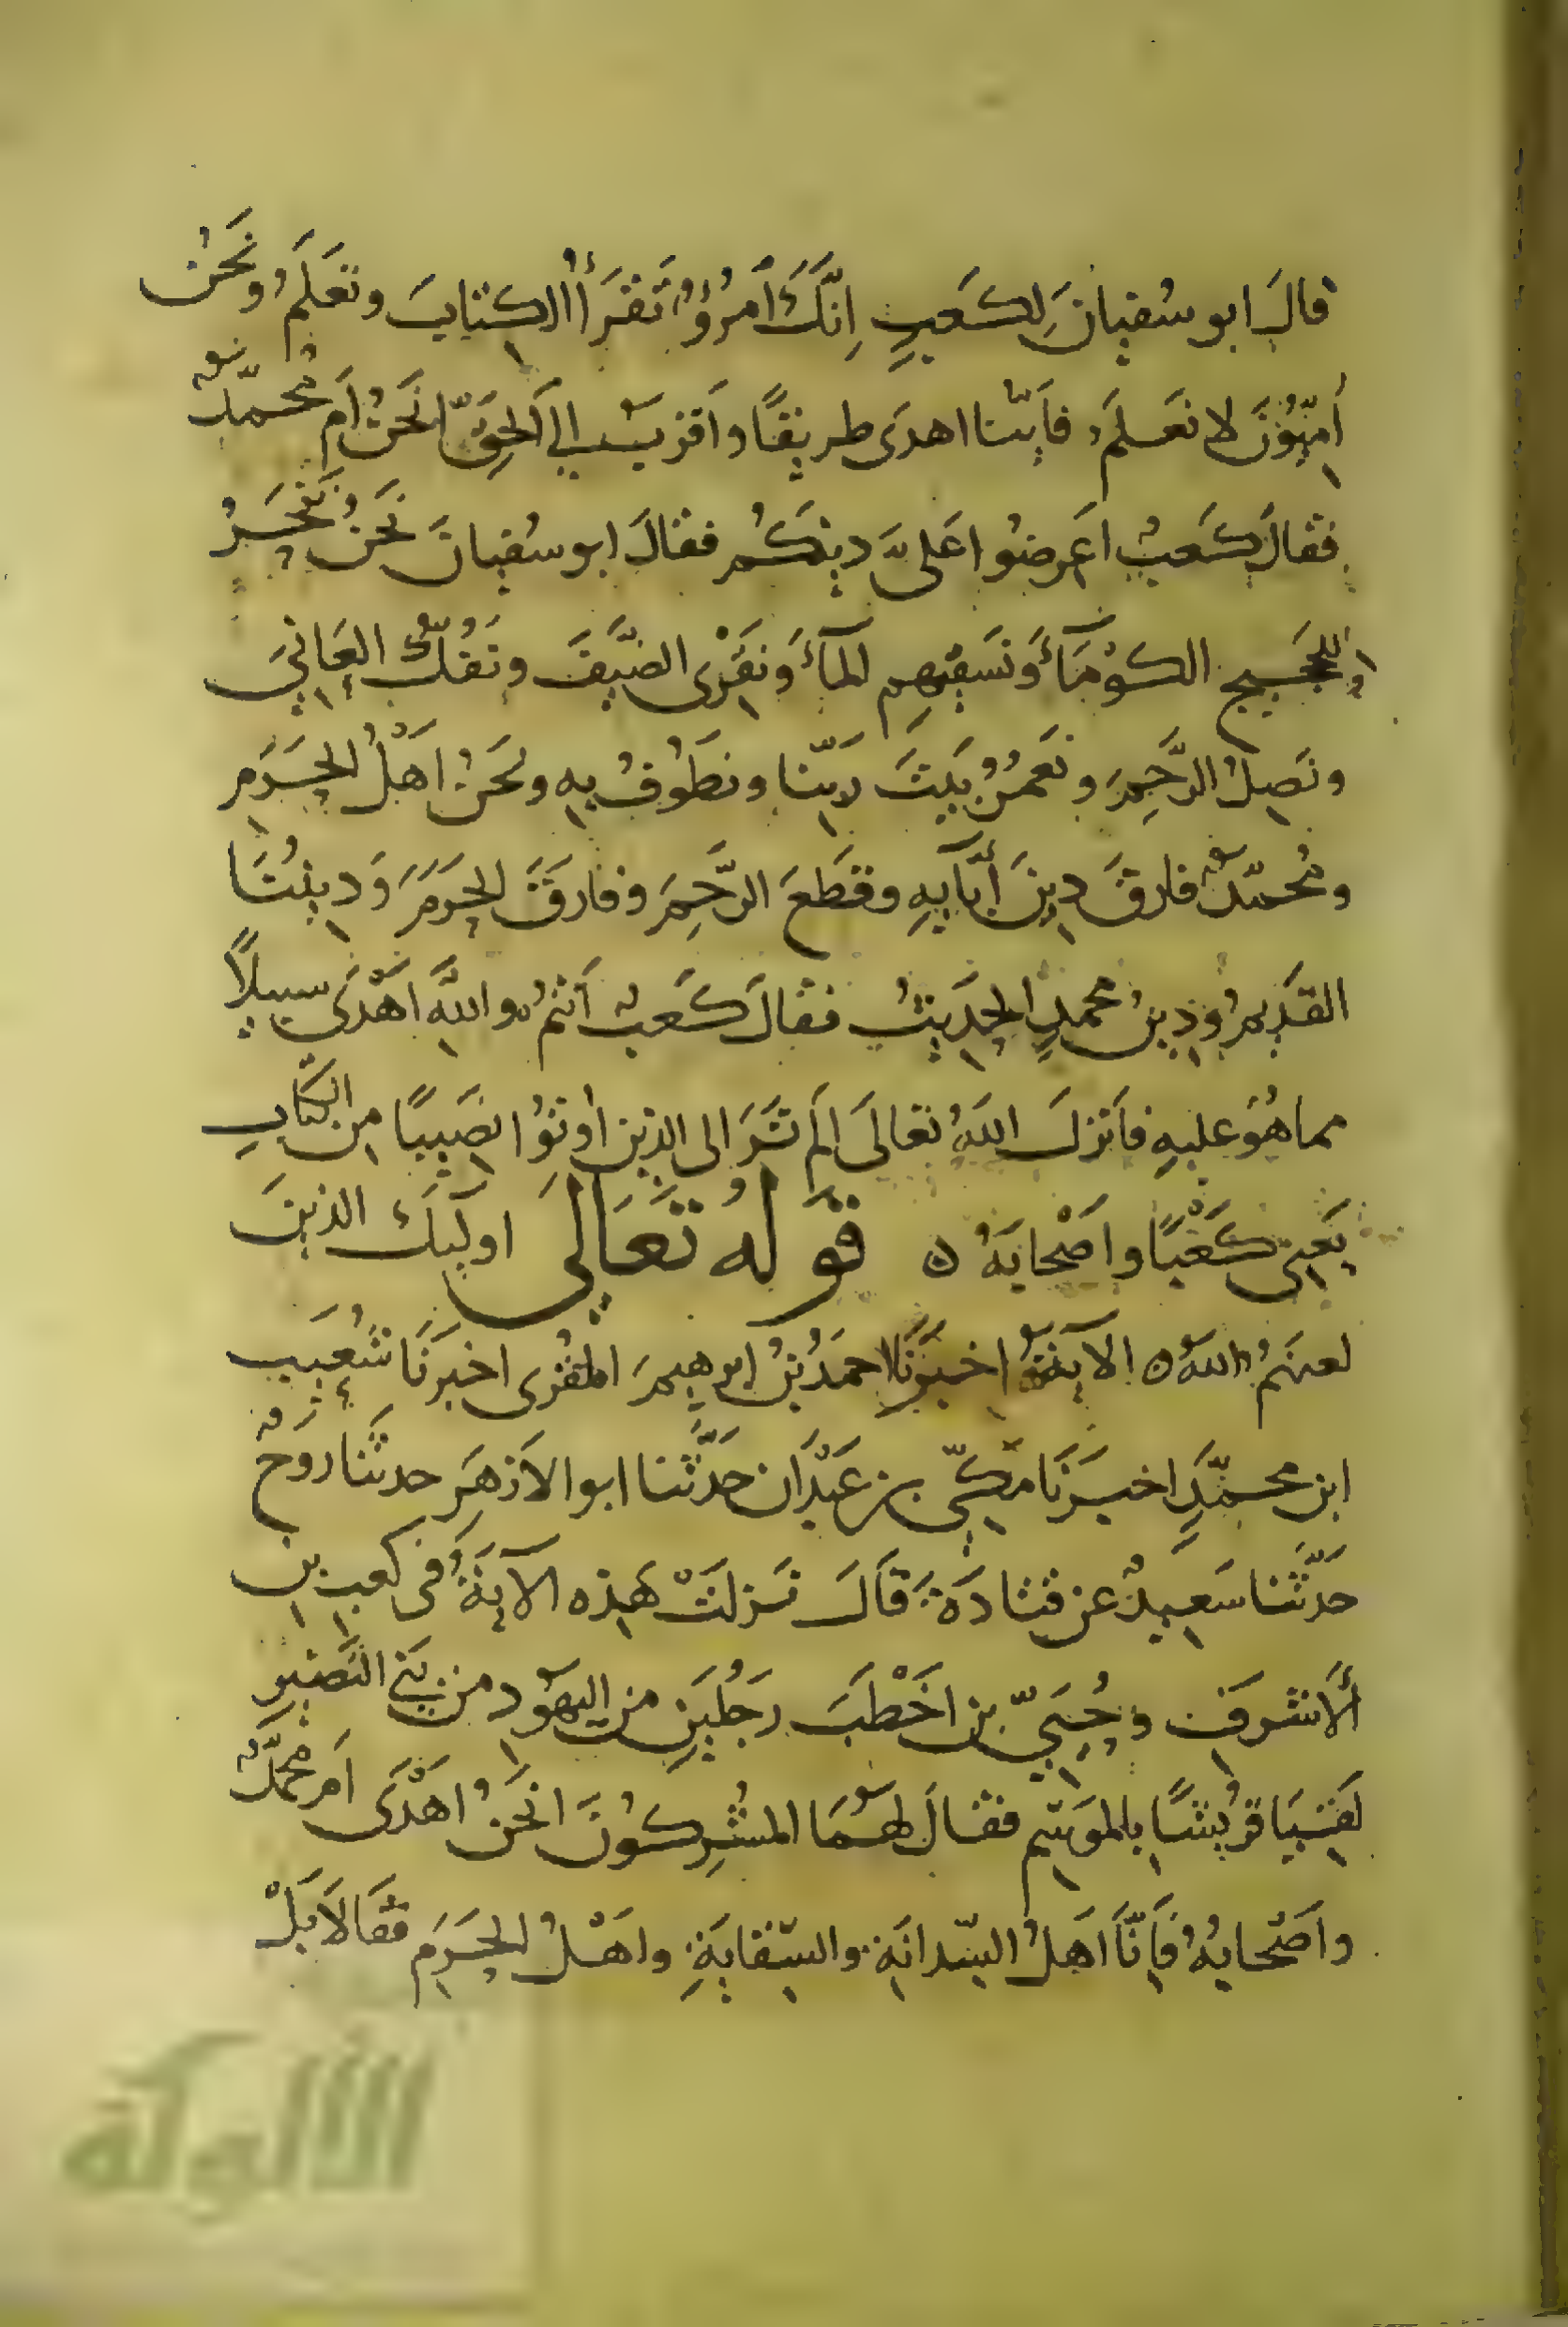 قالَ ابو سُفيانَ لِكَعبٍ اِنَّكَ اَمرُؤٌ تَقرَأُ الكتابَ وتَعلَمُ ونَحْنُ
اُمِّيُّونَ لا نعلَمُ فاَيُّنا اهدَى طريقًا واَقربُ الى الحَقِّ اَنَحنُ اَم محمّدٌ
فقالَ كَعبٌ اَعرِضُوا عَلىَّ دينَكُم فقالَ ابو سُفيانَ نَحنُ نَنْحَرُ
للحَجيج الكَوْمَآءَ ونَسقيهِم المآءَ ونَقْرِى الضَّيفَ ونَفُكُّ العَانِيَ
ونَصِلُ الرَّحِمَ ونَعمُرُ بَيتَ ربِّنا ونَطُوفُ بِهِ ونَحنُ اَهْلُ الحَرَمِ
ومُحمّدٌ فارقَ دِينَ أبآيِهِ وقطَعَ الرَّحِمَ وفارقَ الحَرَمَ وَدِينُنَا
القَدِيمُ ودِينُ محمدٍ الحَدِيثُ فقالَ كَعبٌ اَنتُم واللهِ اَهْدَى سبيلاً
مما هُوَ عليهِ فاَنزلَ اللهُ تعالَى اَلَم تَرَ الى الذين اُوتُوا نصِيبًا مِن الكتابِ
يَعنِى كَعْبًا واَصْحابَهُ ه قولُهُ تَعَالَى اوليِكَ الذينَ
لعنَهمُ اللهُ ه الآيَةَ اخبَرَنَا احمَدُ بنُ ابرهِيمَ المقُرى اخبرَنَا شُعَيبُ
ابن محمّدٍ اخبَرَنَا مَكِّيُّ بن عَبْدَانَ حَدَّثَنا ابو الاَزهَرِ حدثنا رَوحٌ
حَدَّثَنا سَعِيدٌ عن قتادَةَ قَالَ نَزلَتْ هَذِه الآيَةُ في كعبِ بنِ
الأَشرَفِ وحُيَيِّ بن اَخْطَبَ رَجُلَينِ من اليهُودِ من بَنى النَّضيرِ
لَقِيَا قرُيشًا بالموَسِم فقالَ لهُمَا المشُرِكُونَ اَنَحنُ اَهْدَى اَم محمَّدٌ
واَصْحابُهُ فاِنَّا اَهلُ السِّدانَةِ والسِّقايَةِ واهْلُ الحَرَمِ فقَالاَ بَلْ
الألوكة